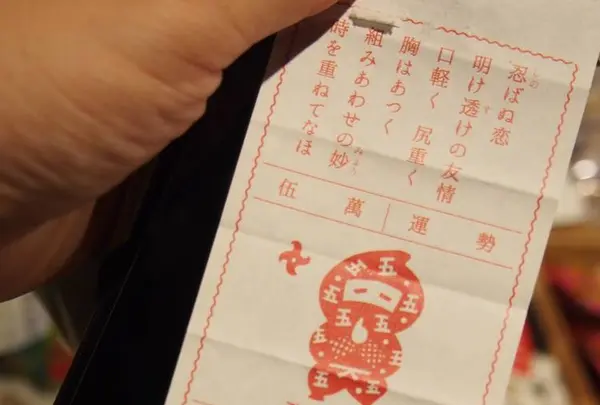 忍ばぬ恋
明け透けの友情
す
口軽く 尻重く
胸はあつく
組みあわせの妙
みょう
時を重ねてなほ
勢運
萬伍
五
五
五
五
五
五
五
五
五
五